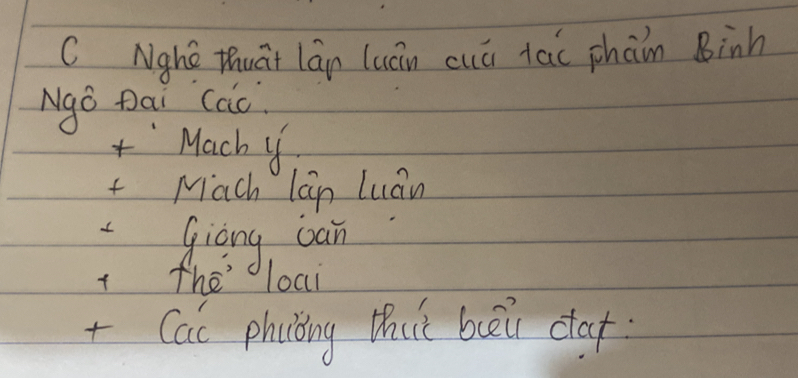 C Nghệ thuật lập luận của tác phẩm Bình
Ngô Đại Cáo.
+ Mạch ý.
+ Mạch lập luận
+ Giọng văn
+ Thể loại
+ Các phương thức biểu đạt: